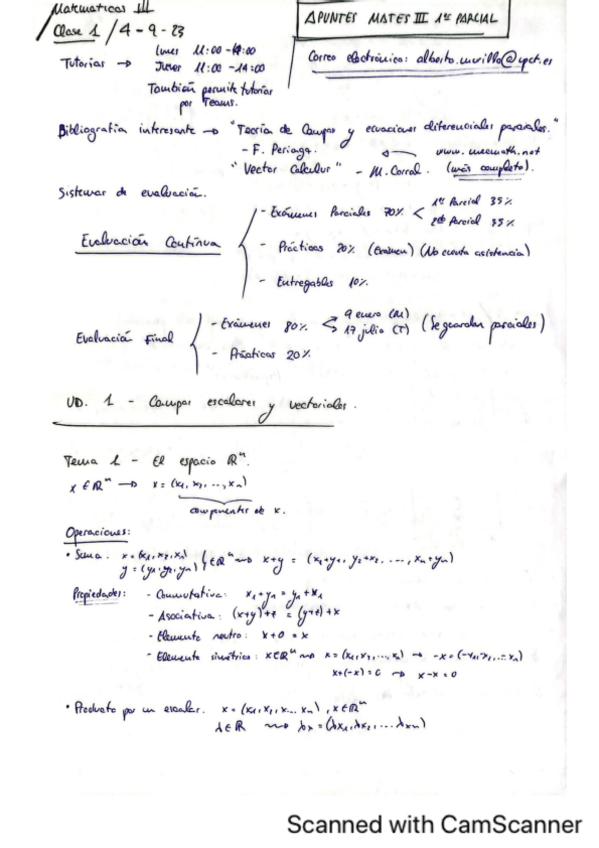 Matematicas III
Clase 1 / 4-9-23
APUNTES MATES III 1er PARCIAL
Tutorías → Lunes 11:00 -
Jueves 11:00 - 14:00
También permite tutorías
por Teams.
Correo electrónico: alberto.murillo@upct.es
Bibliografía interesante → "Teoría de Campos y ecuaciones diferenciales parciales."
- F. Periago. www.mecmath.net
"Vector Calculus" - M. Corral. (más completo).
Sistemas de evaluación.
Evaluación Continua
- Exámenes Parciales 70% < 1er Parcial 35%
2do Parcial 35%
- Prácticas 20% (Examen) (No cuenta asistencia)
- Entregables 10%
Evaluación Final
- Exámenes 80% < 9 enero (M)
17 julio (T) (Se guardan parciales)
- Prácticas 20%
UD. 1 - Campos escalares y vectoriales.
Tema 1 - El espacio ℝⁿ.
x ∈ ℝⁿ → x = (x₁, x₂, ..., xₙ)
componentes de x.
Operaciones:
• Suma: x = (x₁, x₂, xₙ)
y = (y₁, y₂, yₙ) } ∈ ℝⁿ → x+y = (x₁+y₁, y₂+x₂, ..., xₙ+yₙ)
Propiedades: - Conmutativa: x₁+y₁ = y₁+x₁
- Asociativa: (x+y)+z = (y+z)+x
- Elemento neutro: x+0 = x
- Elemento simétrico: x∈ℝⁿ → x = (x₁, x₂, ..., xₙ) → -x = (-x₁, -x₂, ..., -xₙ)
x+(-x) = 0 → x-x = 0
• Producto por un escalar. x = (x₁, x₂, x... xₙ), x∈ℝⁿ
λ∈ℝ → λx = (λx₁, λx₂, ... λxₙ)
Scanned with CamScanner